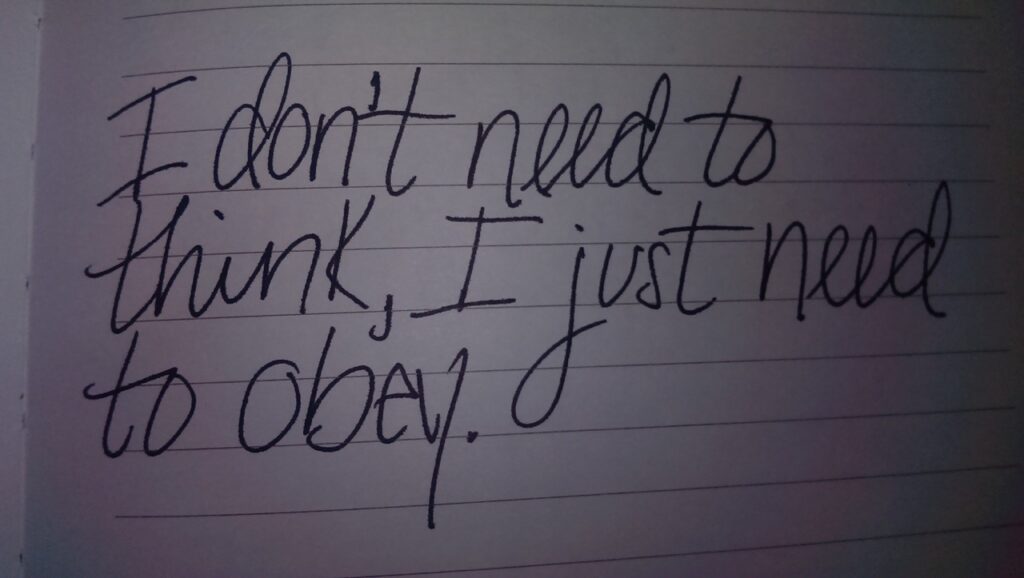 I don't need to
think, I just need
to obey.